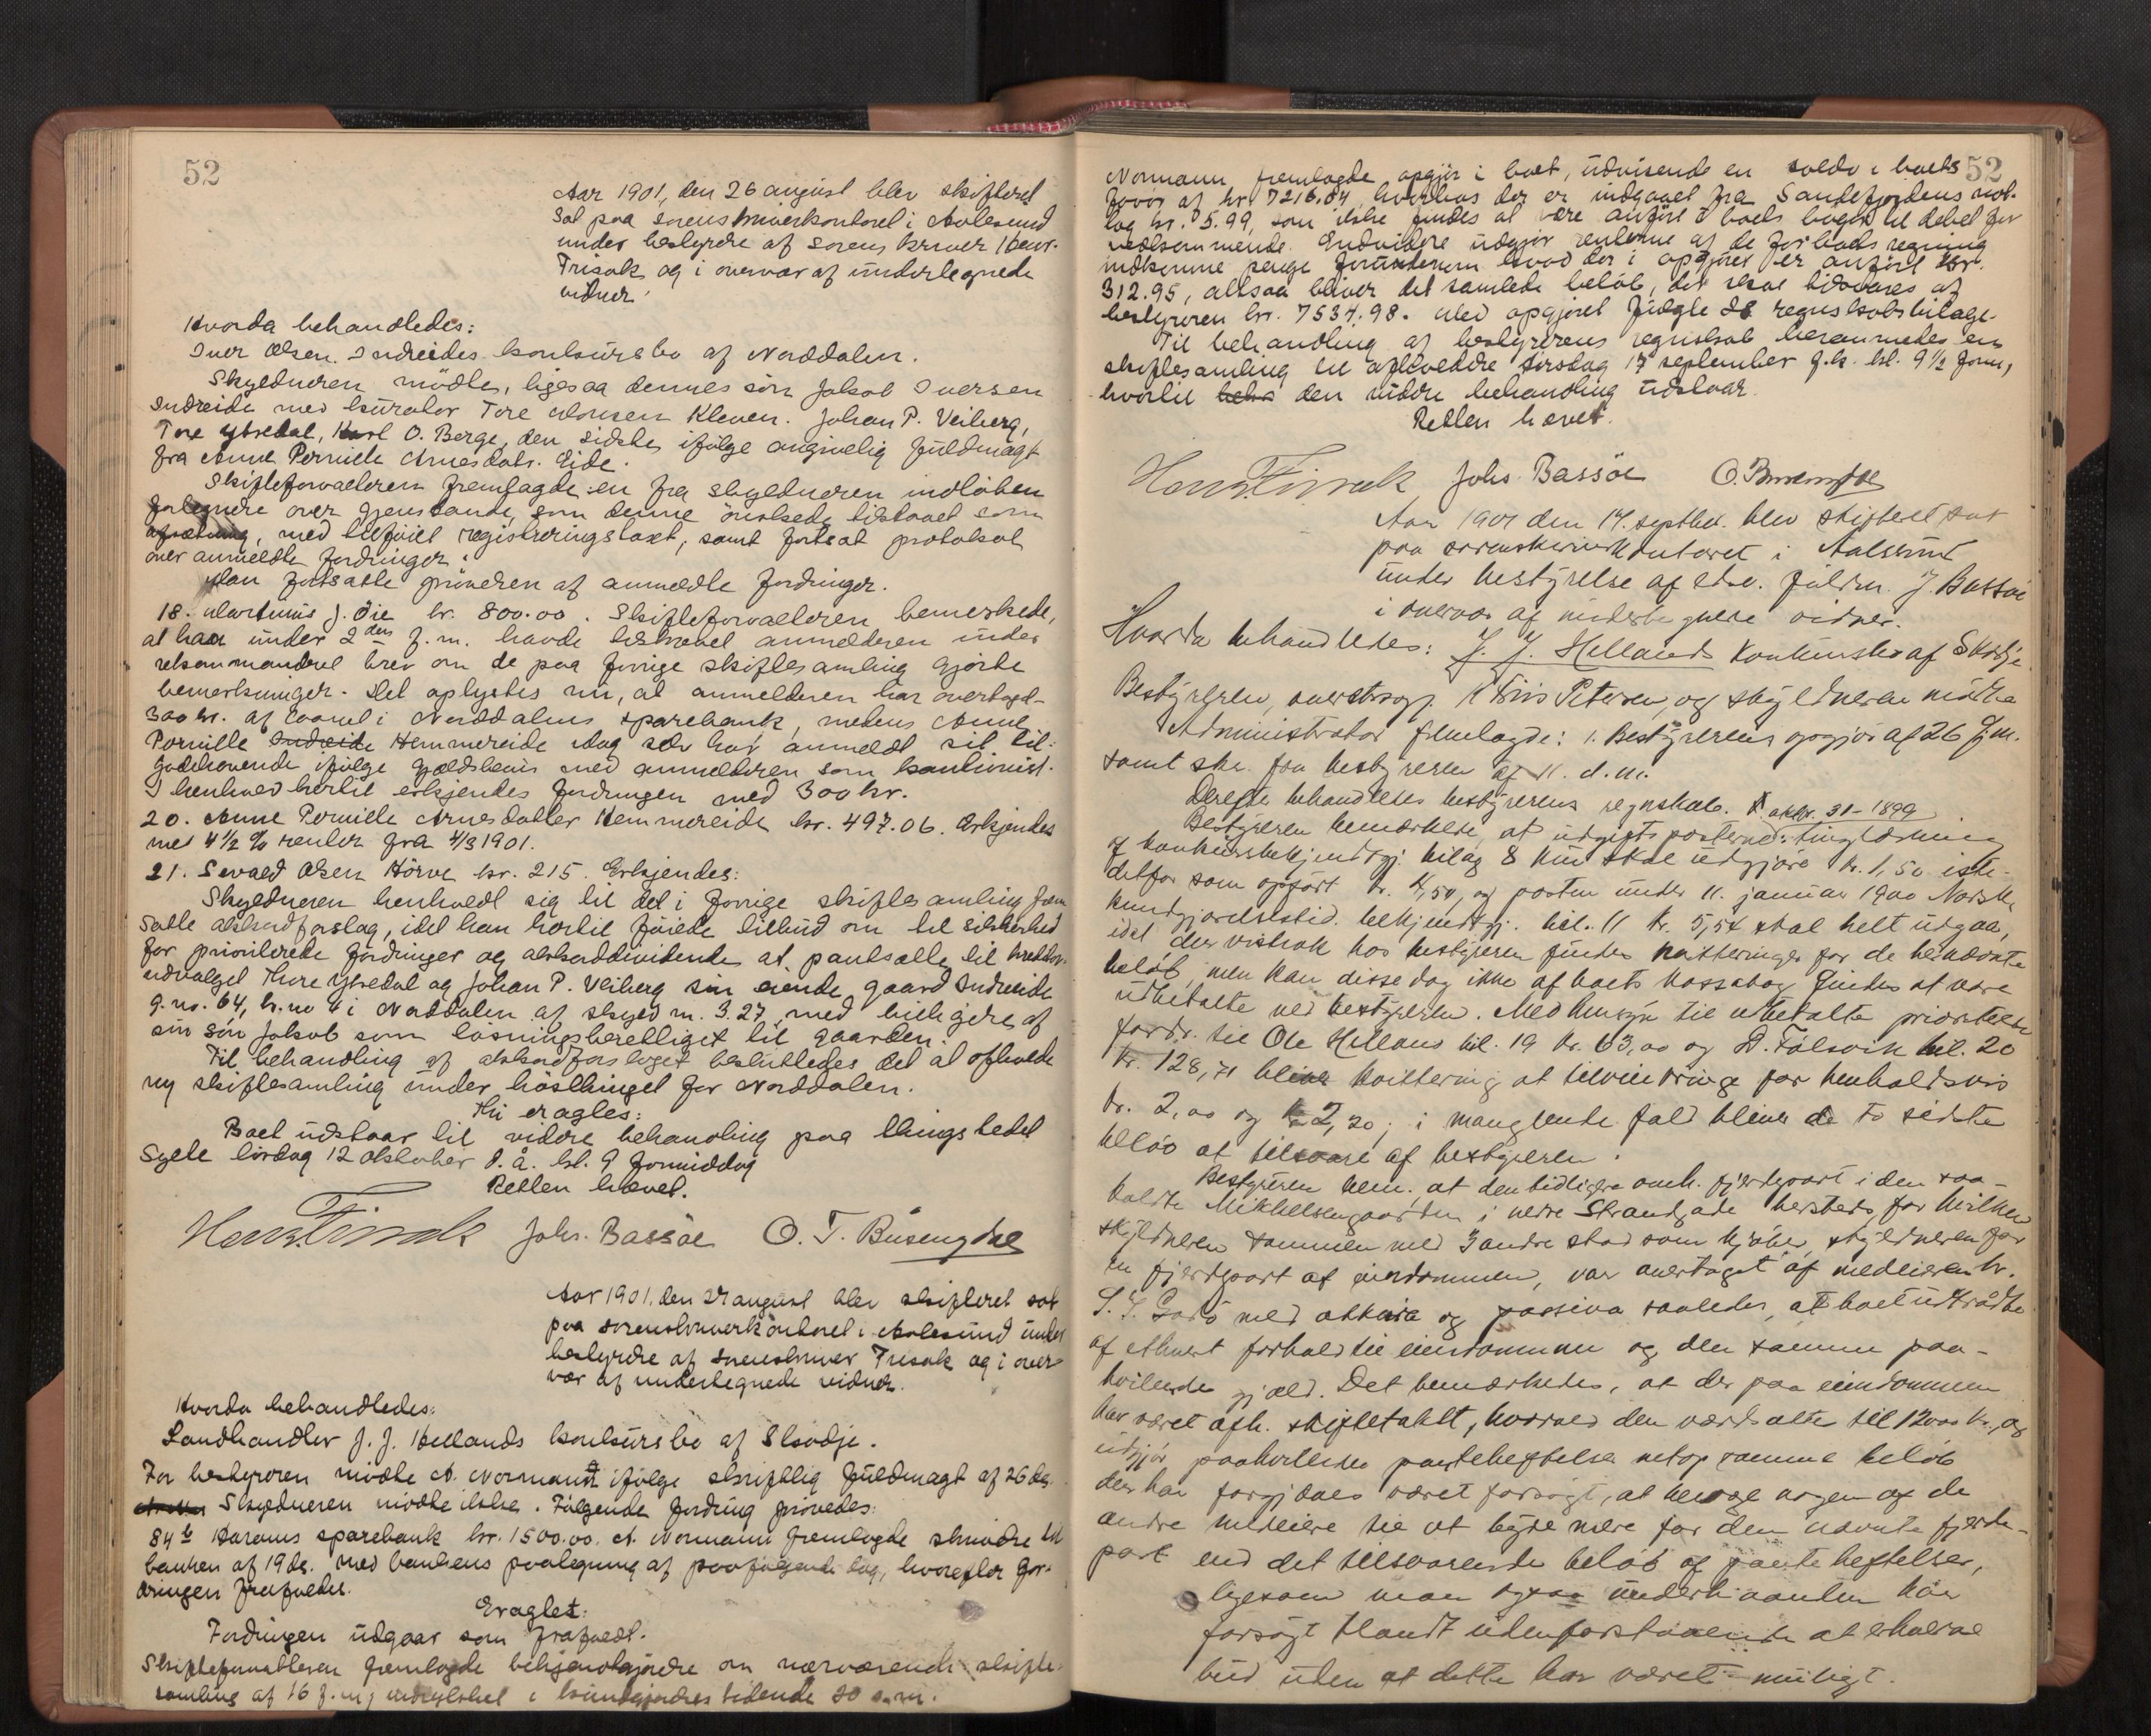 52
Aar 1901, den 26 august blev skifteret
sat paa sorenskriverkontoret i Aalesund
under bestyrelse af sorenskriver Henr.
Finsak og i overvær af undertegnede
vidner.
Hvorda behandledes:
Iver Olsen Indreides konkursbo af Norddalen.
Skyldneren mødte, ligesaa dennes søn Jakob Iversen
Indreide med kurator Tore Monsen Kleven. Johan P. Veiberg,
Tore Ytredal, Karl O. Berge, den sidste ifølge angivelig fuldmagt
fra Anne Pernille Arnesdatr. Eide.
Skifteforvalteren fremlagde en fra skyldneren indløben
fortegnelse over gjenstande, som denne ønskede tilstaaet som
, med tilføiet registreringstaxt, samt fortsat protokol
over anmeldte fordringer.
Man fortsatte prøvelsen af anmeldte fordringer.
18. Martinus J. Øie kr. 800.00. Skifteforvalteren bemerkede,
at han under 2den f.m. havde tilskrevet anmelderen under
rekommanderet brev om de paa forrige skiftesamling gjorte
bemerkninger. Det oplystes nu, at anmelderen har overtaget
300 kr. af laanet i Norddalens sparebank, medens Anne
Pernille Indreide Hemmereide idag selv har anmeldt sit til-
godehavende ifølge gjældsbevis med anmelderen som kautionist.
I henhold hertil erkjendes fordringen med 300 kr.
20. Anne Pernille Arnesdatter Hemmereide kr. 497.06. Erkjendes
med 4½ % renter fra 4/3 1901.
21. Sevald Olsen Hørve kr. 215. Erkjendes.
Skyldneren henholdt sig til det i forrige skiftesamling frem
satte akkordforslag, idet han hertil føiede tilbud om til sikkerhed
for prioriterede fordringer og akkorddividende at pantsætte til kreditor-
udvalget Thore Ytredal og Johan P. Veiberg sin eiende gaard Indreide
g.no. 64, br.no 4 i Norddalen af skyld m. 3.27 med
sin søn Jakob som løsningsberettiget til gaarden.
Til behandling af akkordforslaget besluttedes det at afholde
ny skiftesamling under høsttinget for Norddalen.
Thi eragtes:
Boet udstaar til videre behandling paa thingstedet
Sylte lørdag 12 oktober d.å. kl. 9 formiddag
Retten hævet.
Johs. Bassøe O. T.
Aar 1901, den 27 august blev skifteret sat
paa sorenskriverkontoret i Aalesund under
bestyrelse af sorenskriver Finsak og i over-
vær af undertegnede vidner.
Hvorda behandledes:
Landhandler J. J. Hellands konkursbo af Skodje.
For bestyreren mødte A. Normann ifølge skriftlig fuldmagt af 26 ds.
Skyldneren mødte ikke. Følgende fordring prøvedes:
84 b Harams sparebank kr. 1500.00. A. Normann fremlagde skrivelse til
banken af 19 ds. med bankens paategning af paafølgende dag, hvorefter for-
dringen frafaldes.
Eragtet:
Fordringen udgaar som frafaldt.
Skifteforvalteren fremlagde bekjendtgjørelse om nærværende skifte-
samling af 16 f.m., indrykket i kundgjørelsestidende 20 s.m.
52
Normann fremlagde opgjør i boet, udvisende en saldo i boets
favør af kr. 7216.04, hvorhos der er indgaaet fra Sandefjordens
lag kr. 5.99, som ikke findes at være anført i boets bøger til debet for
vedkommende. Endvidere udgjør renterne af de for boets regning
indkomne penge foruden hvad der i opgjøret er anført kr.
312.95, altsaa bliver det samlede beløb, der skal tilsvares af
bestyreren kr. 7534.98. Med opgjøret fulgte 28 regnskabsbilage.
Til behandling af bestyrerens regnskab berammedes en
skiftesamling til afholdelse tirsdag 17 september f.k. kl. 9½ form,
hvortil den videre behandling udstaar.
Retten hævet.
Johs. Bassøe
Aar 1901 den 17. septbr. blev skifteret sat
paa sorenskriverkontoret i Aalesund
under bestyrelse af edsv. fuldm. J. Bassøe
i overvær af undertegnede vidner.
Hvorda behandledes: J. J. Hellands konkursbo af Skodje.
Bestyreren, overretssagf. Kriis Petersen, og skyldneren mødte
Administrator fremlagde: 1. Bestyrerens opgjør af 26 f.m.
samt skr. fra bestyreren af 11. d.m.
Derefter behandledes bestyrerens regnskab. 31-1899
Bestyreren bemærkede, at udgiftsposterne: tinglæsning
af konkursbekjendtgj. bilag 8 kun skal udgjøre kr. 1,50 iste-
detfor som opført kr. 4,50, og posten under 11. januar 1900 Norsk
kundgjørelsestid. bekjendtgj. bil. 11 kr. 5,54 skal helt udgaa,
idet der vistnok hos bestyreren findes kvitteringer for de benævnte
beløb, men kan disse dog ikke af boets kassabog findes at være
udbetalte ved bestyreren. Med hensyn til utbetalte prioriterte
fordr. til Ole Helland bil. 19 kr. 63,00 og D. Følsvik bil. 20
kr. 128,71 bliver kvittering at tilveiebringe for henholdsvis
kr. 2,00 og kr 2,20; i manglende fald bliver de to sidste
beløb at tilsvare af bestyreren.
Bestyreren bem. at den tidligere omh. fjerdepart i den saa-
kaldte Mikkelsengaarden i nedre Strandgade hersteds, for hvilken
skyldneren sammen med 3 andre stod som kjøber, skyldneren for
en fjerdepart af eiendommen, var overtaget af medeieren hr.
S. J. Godø med aktiva og passiva saaledes, at boet udtrådte
af ethvert forhold til eiendommen og den samme paa-
hvilende gjæld. Det bemærkedes, at der paa eiendommen
har været afh. skiftetakst, hvorved den værdsattes til 12000 kr., og
udgjør paahvilende pantehæftelse netop samme beløb
der har forgjæves været forsøgt, at bevæge nogen af de
andre medeiere til at byde mere for den nævnte fjerde-
part end det tilsvarende beløb af pantehæftelser,
ligesom man ogsaa underhaanden har
forsøgt blandt udenforstaaende at erholde
bud uden at dette har været muligt.